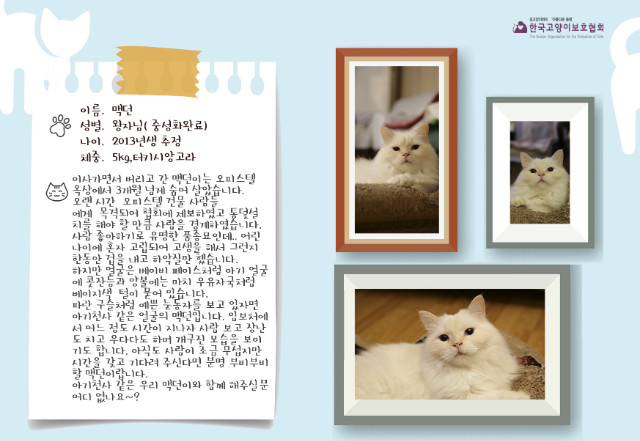 길고양이에게 '아름다운 동행'
한국고양이보호협회
이름. 맥던
성별. 왕자님( 중성화완료)
나이. 2013년생 추정
체중. 5kg,터키시앙고라
이사가면서 버리고 간 맥던이는 오피스텔
옥상에서 3개월 넘게 숨어 살았습니다.
오랜 시간 오피스텔 건물 사람들
에게 목격되어 협회에 제보하였고 통덫설
치를 해야 할 만큼 사람을 경계하였습니다.
사람 좋아하기로 유명한 품종묘인데.. 어린
나이에 혼자 고립되어 고생을 해서 그런지
한동안 겁을 내고 하악질만 했습니다.
하지만 얼굴은 베이비 페이스처럼 아기 얼굴
에 콧잔등과 양볼에는 마치 우유자국처럼
베이지색 털이 묻어 있습니다.
파란 구슬처럼 예쁜 눈동자를 보고 있자면
아기천사 같은 얼굴의 맥던입니다. 임보처에
서 어느 정도 시간이 지나자 사람 보고 장난
도 치고 우다다도 하며 개구진 모습을 보이
기도 합니다. 아직도 사람이 조금 무섭지만
시간을 갖고 기다려 주신다면 분명 부비부비
할 맥던이랍니다.
아기천사 같은 우리 맥던이와 함께 해주실분
어디 없나요~?